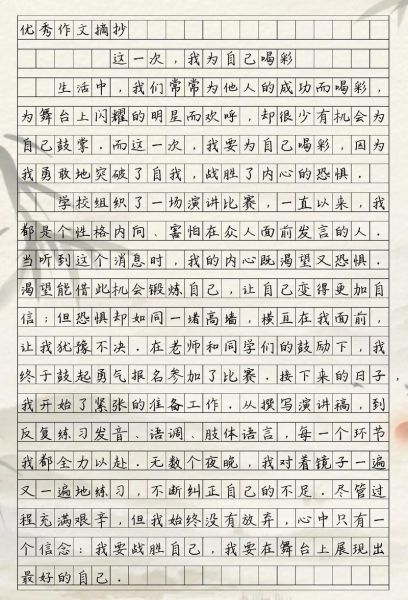 优秀作文摘抄
这一次，我为自己喝彩
生活中，我们常常为他人的成功而喝彩，
为舞台上闪耀的明星而欢呼，却很少有机会为
自己鼓掌．而这一次，我要为自己喝彩，因为
我勇敢地突破了自我，战胜了内心的恐惧．
学校组织了一场演讲比赛，一直以来，我
都是个性格内向、害怕在众人面前发言的人．
当听到这个消息时，我的内心既渴望又恐惧．
渴望能借此机会锻炼自己，让自己变得更加自
信；但恐惧却如同一堵高墙，横亘在我面前，
让我犹豫不决．在老师和同学们的鼓励下，我
终于鼓起勇气报名参加了比赛．接下来的日子，
我开始了紧张的准备工作．从撰写演讲稿，到
反复练习发音、语调、肢体语言，每一个环节
我都全力以赴．无数个夜晚，我对着镜子一遍
又一遍地练习，不断纠正自己的不足．尽管过
程充满艰辛，但我始终没有放弃，心中只有一
个信念：我要战胜自己，我要在舞台上展现出
最好的自己．